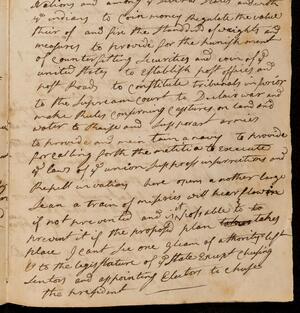 Nations and among ye several States and with
ye indians to Coin money Regulate the value
their of and fix the Standard of weights and
measures to provide for the punishment
of Counterfitting Securities and coin of ye
united States to Establish post offices and
post Roads to Constitute tribunals inferior
to the Supream Court to Declare war and
make Rules Conserning Captures on land and
water to Raise and Support armies
to provide and maintain a navy to provide
for calling forth the militia to Execute
ye laws of ye union Suppress insurrections and
Repell invations here opens another large
Sean a train of miseries will hear flow in
if not prevented and impossable to
prevent it if the proposd plan takes
place I cant See one gleam of athority left
to the legislature of ye State Except Chusing
Senators and appointing Electors to Chuse
the president